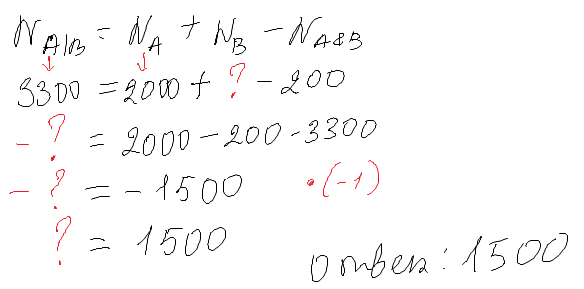 N_A|B = N_A + N_B - N_A&B
3300 = 2000 + ? - 200
- ? = 2000 - 200 - 3300
- ? = - 1500 •(-1)
? = 1500
ответ: 1500